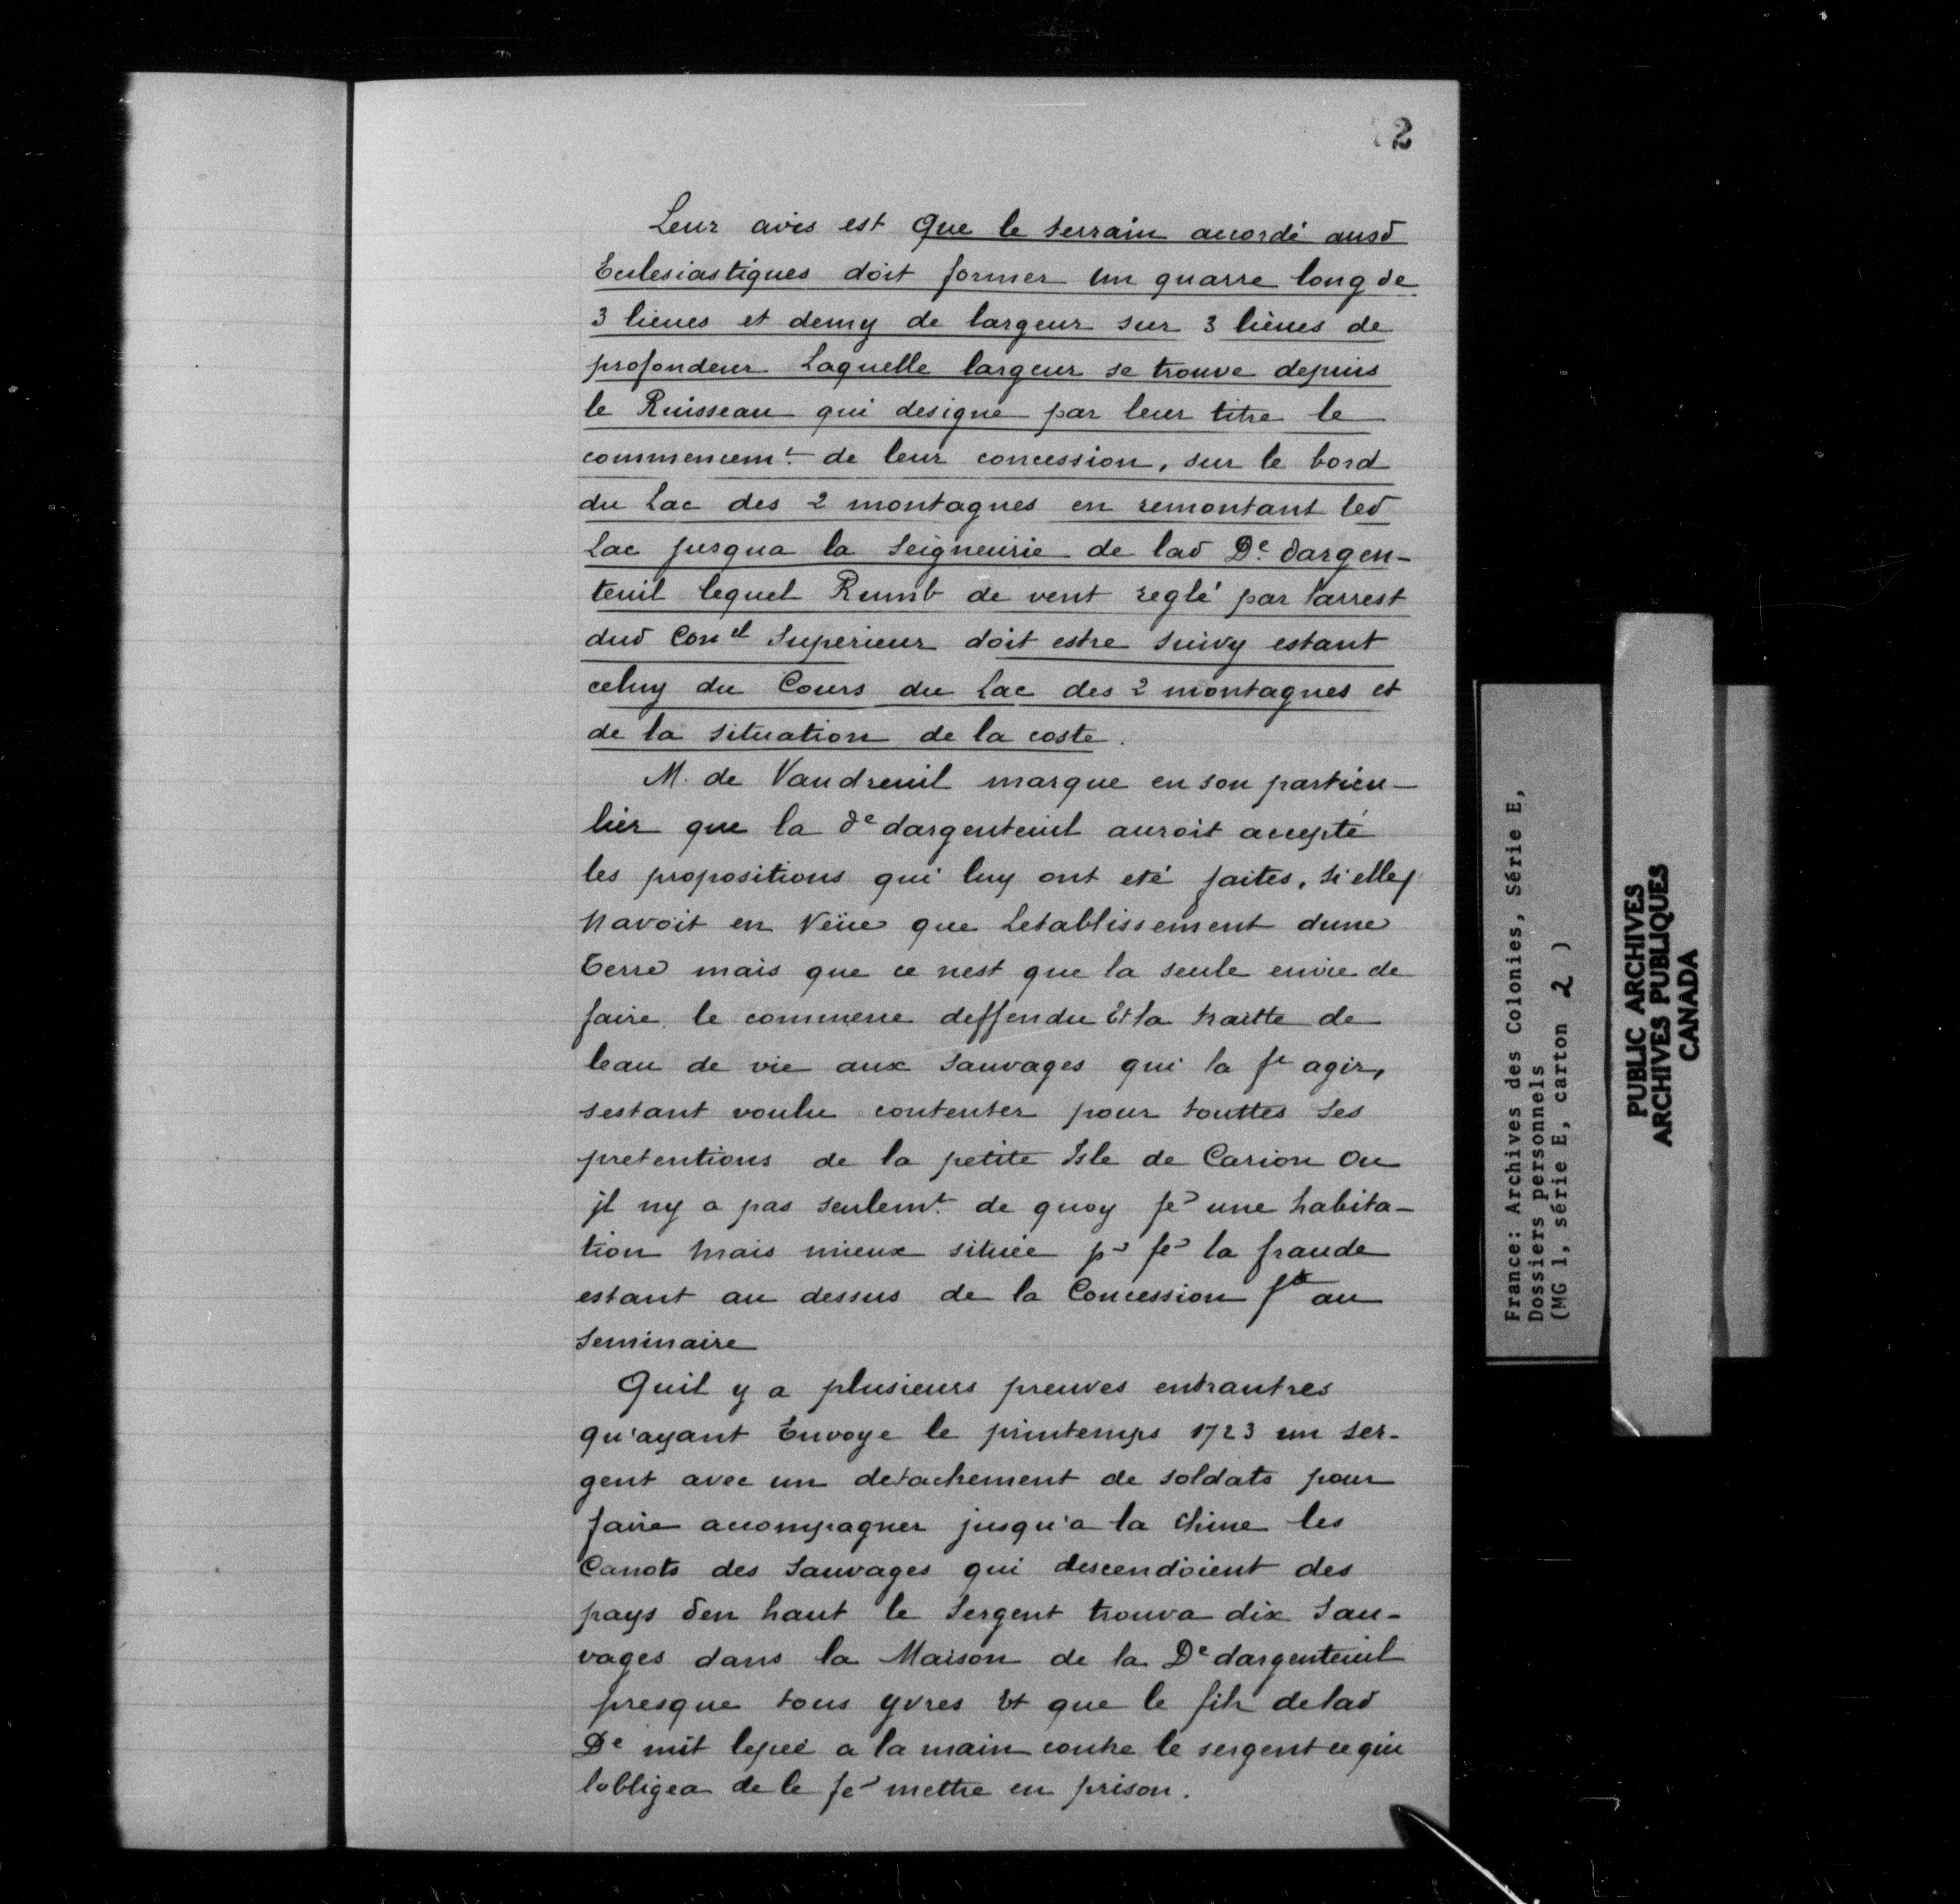 2
Leur avis est Que le terrain accordé ausd
Eclesiastiques doit former un quarre long de
3 lieues et demy de largeur sur 3 lieues de
profondeur Laquelle largeur se trouve depuis
le Ruisseau qui designe par leur titre le
commencemt. de leur concession, sur le bord
du Lac des 2 montagnes en remontant led
Lac jusqua la Seigneurie de lad De dargen-
teuil lequel Rumb de vent reglé par larrest
dud Conel Superieur doit estre suivy estant
celuy du Cours du Lac des 2 montagnes et
de la situation de la coste.
M. de Vaudreuil marque en son particu-
lier que la de dargenteuil auroit accepté
les propositions qui luy ont eté faites, si elle
Navoit en Veüe que Letablissement dune
Terre mais que ce nest que la seule envie de
faire le commerce deffendu Et la traitte de
leau de vie aux Sauvages qui la ft agir,
sestant voulu contenter pour touttes ses
pretentions de la petite Isle de Carion Ou
jl ny a pas seulemt. de quoy fe une habita-
tion Mais mieux située pr fe la fraude
estant au dessus de la Concession fte au
Seminaire
Quil y a plusieurs preuves entrautres
qu'ayant Envoye le printemps 1723 un ser-
gent avec un detachement de soldats pour
faire accompagner jusqu'a la Chine les
Canots des Sauvages qui descendoient des
pays den haut le Sergent trouva dix Sau-
vages dans la Maison de la De dargenteuil
presque tous yvres Et que le fils de lad
De mit lepeé a la main contre le sergent ce qui
lobligea de le fe mettre en prison.
France: Archives des Colonies, Série E,
Dossiers personnels
(MG 1, série E, carton 2 )
PUBLIC ARCHIVES
ARCHIVES PUBLIQUES
CANADA